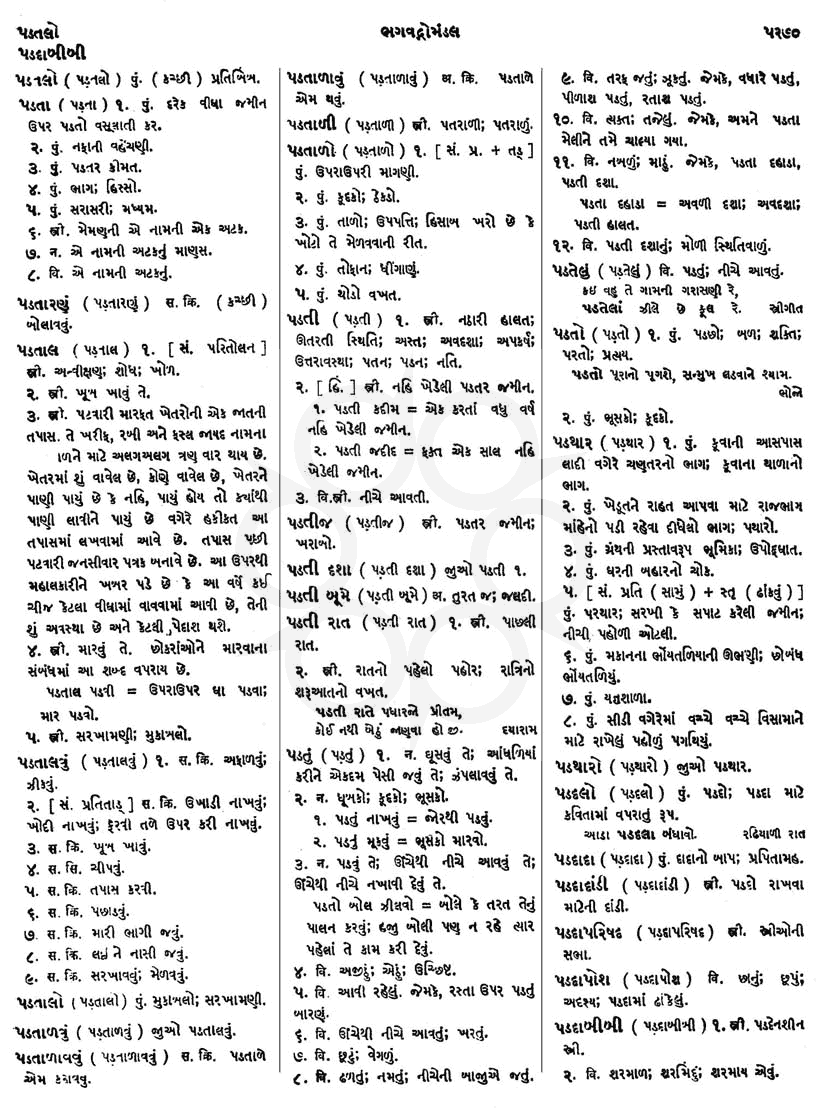 પડતલો
પડદાબીબી
ભગવદ્ગોમંડલ
૫૨૭૦
પડતલો ( પડ્તલો ) પું. ( કચ્છી ) પ્રતિબિંબ.
પડતા ( પડ્તા ) ૧. પું. દરેક વીઘા જમીન
ઉપર પડતો વસૂલાતી કર.
૨. પું. નફાની વહેંચણી.
૩. પું. પડતર કીમત.
૪. પું. ભાગ; હિસ્સો.
૫. પું. સરાસરી; મધ્યમ.
૬. સ્ત્રી. મેમણની એ નામની એક અટક.
૭. ન. એ નામની અટકનું માણસ.
૮. વિ. એ નામની અટકનું.
પડતારણું ( પડ્તારણું ) સ. ક્રિ. ( કચ્છી )
બોલાવવું.
પડતાલ ( પડ્તાલ ) ૧. [ સં. પરિતોલન ]
સ્ત્રી. અન્વીક્ષણ; શોધ; ખોળ.
૨. સ્ત્રી. ખૂબ ખાવું તે.
૩. સ્ત્રી. પટવારી મારફત ખેતરોની એક જાતની
તપાસ. તે ખરીફ, રબી અને ફસ્લ જાયદ નામના
ળને માટે અલગઅલગ ત્રણ વાર થાય છે.
ખેતરમાં શું વાવેલ છે, કોણે વાવેલ છે, ખેતરને
પાણી પાયું છે કે નહિ, પાયું હોય તો ક્યાંથી
પાણી લાવીને પાયું છે વગેરે હકીકત આ
તપાસમાં લખવામાં આવે છે. તપાસ પછી
પટવારી જનસીવાર પત્રક બનાવે છે. આ ઉપરથી
મહાલકારીને ખબર પડે છે કે આ વર્ષે કઈ
ચીજ કેટલા વીઘામાં વાવવામાં આવી છે, તેની
શું અવસ્થા છે અને કેટલી પેદાશ થશે.
૪. સ્ત્રી. મારવું તે. છોકરાંઓને મારવાના
સંબંધમાં આ શબ્દ વપરાય છે.
પડતાલ પડવી = ઉપરાઉપર ઘા પડવા;
માર પડવો.
૫. સ્ત્રી. સરખામણી; મુકાબલો.
પડતાલવું ( પડ્તાલવું ) ૧. સ. ક્રિ. અફાળવું;
ઝીકવું.
૨. [ સં. પ્રતિતાડ્ ] સ. ક્રિ. ઉખાડી નાખવું;
ખોદી નાખવું; ફેરવી તળે ઉપર કરી નાખવું.
૩. સ. ક્રિ. ખૂબ ખાવું.
૪. સ. ક્રિ. ચીપવું.
૫. સ. ક્રિ. તપાસ કરવી.
૬. સ. ક્રિ. પછાડવું.
૭. સ. ક્રિ. મારી ભાગી જવું.
૮. સ. ક્રિ. લઇને નાસી જવું.
૯. સ. ક્રિ. સરખાવવું; મેળવવું.
પડતાલો ( પડ્તાલો ) પું. મુકાબલો; સરખામણી.
પડતાળવું ( પડ્તાળવું ) જુઓ પડતાલવું.
પડતાળાવવું ( પડ્તાળાવવું ) સ. ક્રિ. પડતાળે
એમ કરાવવુ.
પડતાળાવું ( પડ્તાળાવું ) અ. ક્રિ. પડતાળે
એમ થવું.
પડતાળી ( પડ્તાળી ) સ્ત્રી. પતરાળી; પતરાળું.
પડતાળો ( પડ્તાળો ) ૧. [ સં. પ્ર. + તડ્ ]
પું. ઉપરાઉપરી માગણી.
૨. પું. કૂદકો; ઠેકડો.
૩. પું. તાળો; ઉપપત્તિ; હિસાબ ખરો છે કે
ખોટો તે મેળવવાની રીત.
૪. પું. તોફાન; ધીંગાણું.
૫. પું. થોડો વખત.
પડતી ( પડ્તી ) ૧. સ્ત્રી. નઠારી હાલત;
ઊતરતી સ્થિતિ; અસ્ત; અવદશા; અપકર્ષ;
ઉત્તરાવસ્થા; પતન; પડન; નતિ.
૨. [ હિં. ] સ્ત્રી. નહિ ખેડેલી પડતર જમીન.
૧. પડતી કદીમ = એક કરતાં વધુ વર્ષ
નહિ ખેડેલી જમીન.
૨. પડતી જદીદ = ફક્ત એક સાલ નહિ
ખેડેલી જમીન.
૩. વિ.સ્ત્રી. નીચે આવતી.
પડતીજ ( પડ્તીજ ) સ્ત્રી. પડતર જમીન;
ખરાબો.
પડતી દશા ( પડ્તી દશા ) જુઓ પડતી ૧.
પડતી બૂમે ( પડ્તી બૂમે ) અ. તુરત જ; જલદી.
પડતી રાત ( પડ્તી રાત ) ૧. સ્ત્રી. પાછલી
રાત.
૨. સ્ત્રી. રાતનો પહેલો પહોર; રાત્રિનો
શરૂઆતનો વખત.
પડતી રાતે પધારજો પ્રીતમ,
કોઈ નથી બેઠું જાણવા હો જી. દયારામ
પડતું ( પડ્તું ) ૧. ન. ઘૂસવું તે; આંધળિયાં
કરીને એકદમ પેસી જવું તે; ઝંપલાવવું તે.
૨. ન. ધૂબકો; કૂદકો; ભૂસકો.
૧. પડતું નાખવું = જોરથી પડવું.
૨. પડતું મૂકવું = ભૂસકો મારવો.
૩. ન. પડવું તે; ઊંચેથી નીચે આવવું તે;
ઊંચેથી નીચે નખાવી દેવું તે.
પડતો બોલ ઝીલવો = બોલે કે તરત તેનું
પાલન કરવું; હજુ બોલી પણ ન રહે ત્યાર
પહેલાં તે કામ કરી દેવું.
૪. વિ. અજીઠું; એઠું; ઉચ્છિષ્ટ.
૫. વિ. આવી રહેલું. જેમકે, રસ્તા ઉપર પડતું
બારણું.
૬. વિ. ઊંચેથી નીચે આવતું; ખરતું.
૭. વિ. છૂટું; વેગળું.
૮. વિ. ઢળતું; નમતું; નીચેની બાજુએ જતું.
૯. વિ. તરફ જતું; ઝૂકતું. જેમકે, વધારે પડતું,
પીળાશ પડતું, રતાશ પડતું.
૧૦. વિ. ત્યક્ત; તજેલું. જેમકે, અમને પડતા
મેલીને તમે ચાલ્યા ગયા.
૧૧. વિ. નબળું; માઠું. જેમકે, પડતા દહાડા,
પડતી દશા.
પડતા દહાડા = અવળી દશા; અવદશા;
પડતી હાલત.
૧૨. વિ. પડતી દશાનું; મોળી સ્થિતિવાળું.
પડતેલું ( પડ્તેલું ) વિ. પડતું; નીચે આવતું.
કઇ વહુ તે ગામની ગરાસણી રે,
પડતેલાં ઝીલે છે ફૂલ રે. સ્ત્રીગીત
પડતો ( પડ્તો ) ૧. પું. પડછો; બળ; શક્તિ;
પરતો; પ્રત્યય.
પડતો પૂરાનો પૂગશે, સન્મુખ લડવાને શ્યામ.
ભોજો
૨. પું. ભૂસકો; કૂદકો.
પડથાર ( પડ્થાર ) ૧. પું. કૂવાની આસપાસ
લાદી વગેરે ચણતરનો ભાગ; કૂવાના થાળાનો
ભાગ.
૨. પું. ખેડૂતને રાહત આપવા માટે રાજભાગ
માંહેનો પડી રહેવા દીધેલો ભાગ; પથારો.
૩. પું. ગ્રંથની પ્રસ્તાવરૂપ ભૂમિકા; ઉપોદ્ઘાત.
૪. પું. ઘરની બહારનો ચોક.
૫. [ સં. પ્રતિ ( સામું ) + સ્તૃ ( ઢાંકવું ) ]
પું. પરથાર; સરખી કે સપાટ કરેલી જમીન;
નીચી પહોળી ઓટલી.
૬. પું. મકાનના ભોંયતળિયાની ઊભણી; છોબંધ
ભોંયતળિયું.
૭. પું. યજ્ઞશાળા.
૮. પું. સીડી વગેરેમાં વચ્ચે વચ્ચે વિસામાને
માટે રાખેલું પહોળું પગથિયું.
પડથારો ( પડ્થારો ) જુઓ પડથાર.
પડદલો ( પડ્દલો ) પું. પડદો; પડદા માટે
કવિતામાં વપરાતું રૂપ.
આડા પડદલા બંધાવો. રઢિયાળી રાત
પડદાદા ( પડ્દાદા ) પું. દાદાનો બાપ; પ્રપિતામહ.
પડદાદાંડી ( પડ્દાદાંડી ) સ્ત્રી. પડદો રાખવા
માટેની દાંડી.
પડદાપરિષદ ( પડ્દાપરિષદ ) સ્ત્રી. સ્ત્રીઓની
સભા.
પડદાપોશ ( પડ્દાપોશ ) વિ. છાનું; છૂપું;
અદશ્ય; પડદામાં ઢાંકેલું.
પડદાબીબી ( પડ્દાબીબી ) ૧. સ્ત્રી. પડદેનશીન
સ્ત્રી.
૨. વિ. શરમાળ; શરમિંદું; શરમાય એવું.